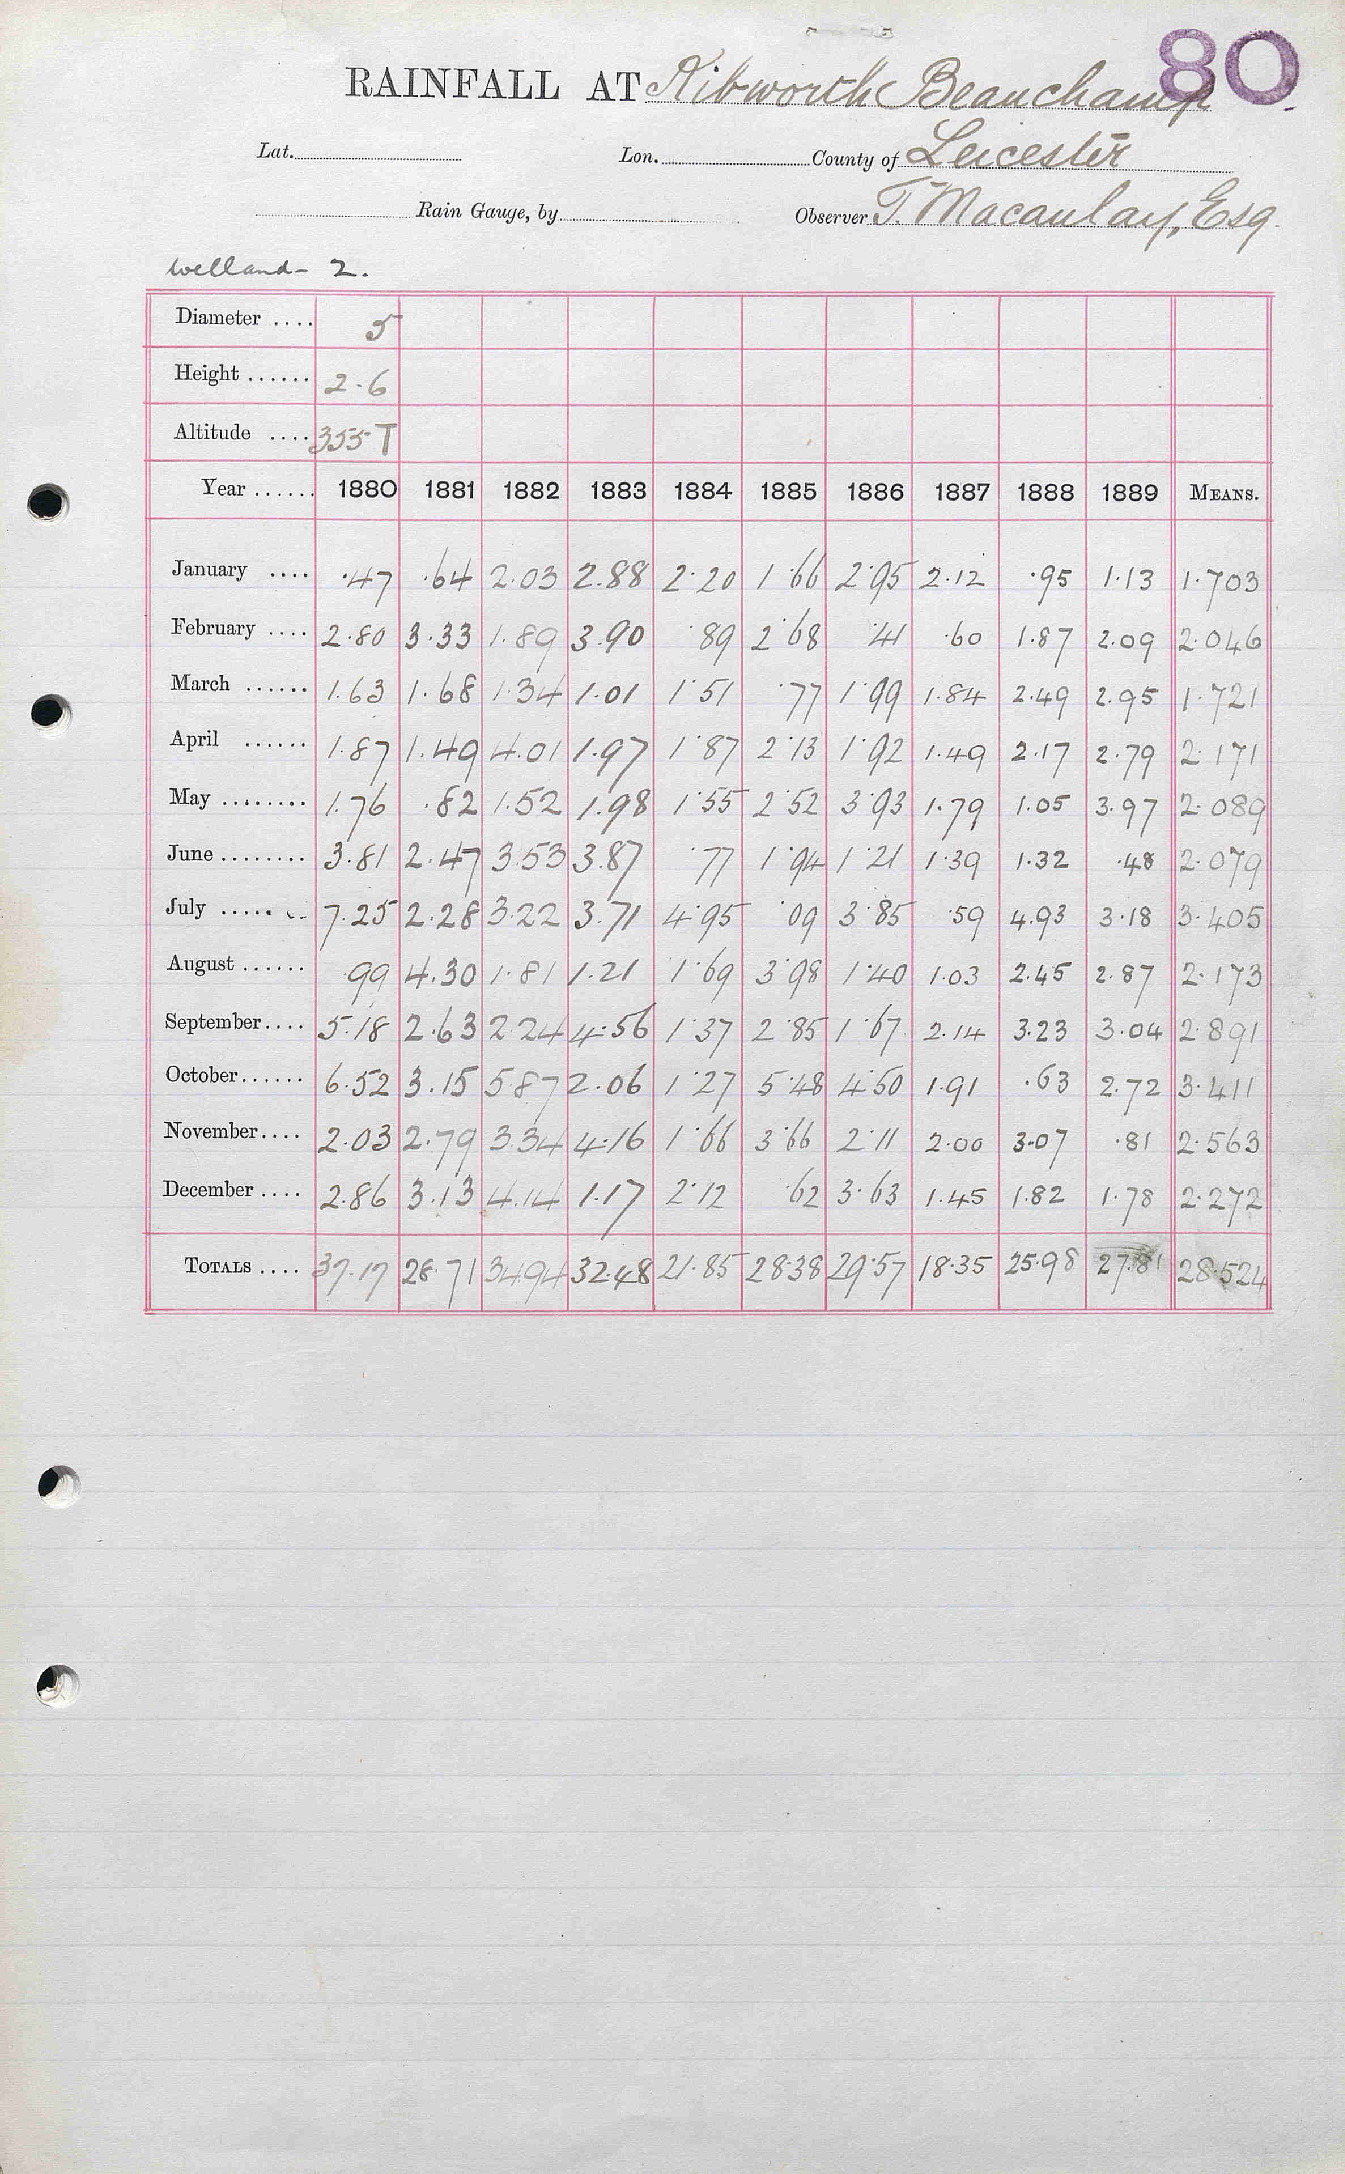 80
RAINFALL AT Kibworth Beauchamp
Lat. Lon. County of Leicester
Rain Gauge, by Observer T. Macaulay, Esq
Welland - 2.
Diameter .... 5
Height ...... 2.6
Altitude .... 355 T
Year ...... 1880 1881 1882 1883 1884 1885 1886 1887 1888 1889 MEANS.
January .... .47 .64 2.03 2.88 2.20 1.66 2.95 2.12 .95 1.13 1.703
February .... 2.80 3.33 1.89 3.90 .89 2.68 .41 .60 1.87 2.09 2.046
March ...... 1.63 1.68 1.34 1.01 1.51 .77 1.99 1.84 2.49 2.95 1.721
April ...... 1.87 1.49 4.01 1.97 1.87 2.13 1.92 1.49 2.17 2.79 2.171
May ........ 1.76 .82 1.52 1.98 1.55 2.52 3.93 1.79 1.05 3.97 2.089
June ........ 3.81 2.47 3.53 3.87 .77 1.94 1.21 1.39 1.32 .48 2.079
July ..... 7.25 2.28 3.22 3.71 4.95 .09 3.85 .59 4.93 3.18 3.405
August ...... .99 4.30 1.81 1.21 1.69 3.98 1.40 1.03 2.45 2.87 2.173
September.... 5.18 2.63 2.24 4.56 1.37 2.85 1.67 2.14 3.23 3.04 2.891
October...... 6.52 3.15 5.87 2.06 1.27 5.48 4.50 1.91 .63 2.72 3.411
November.... 2.03 2.79 3.34 4.16 1.66 3.66 2.11 2.00 3.07 .81 2.563
December .... 2.86 3.13 4.14 1.17 2.12 .62 3.63 1.45 1.82 1.78 2.272
TOTALS .... 37.17 28.71 34.94 32.48 21.85 28.38 29.57 18.35 25.98 27.81 28.524